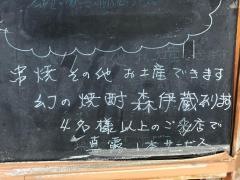 串焼 その他 お土産できます
幻の焼酎 森伊蔵あります
4名様以上のご来店で
1本サービス